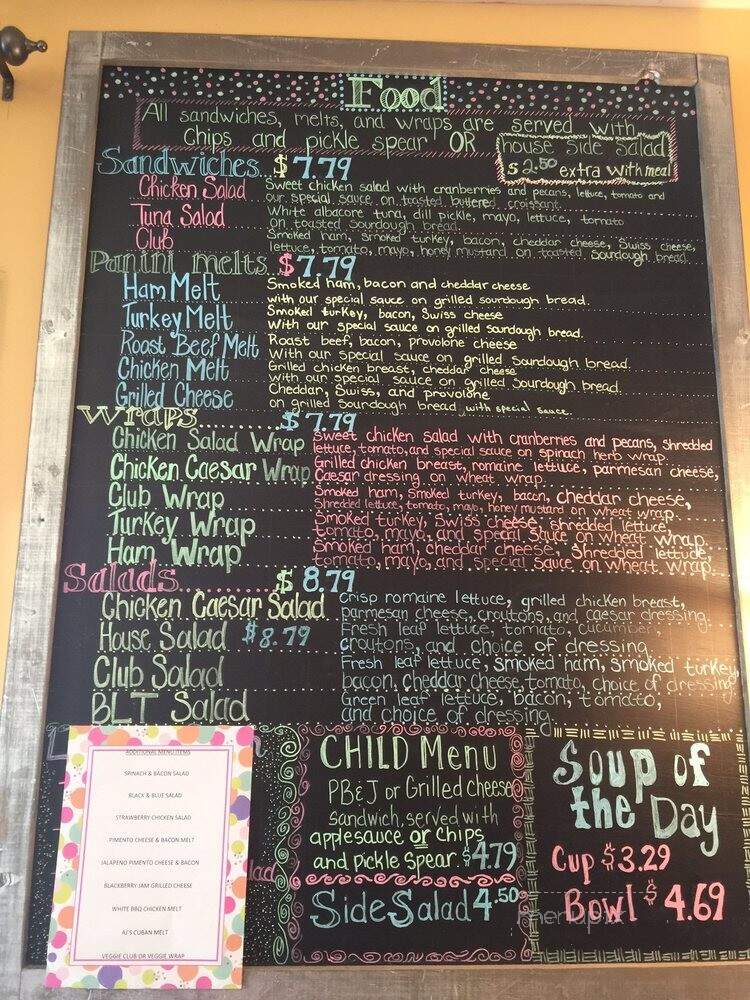 Food
All sandwiches, melts, and wraps are served with
Chips and pickle spear OR
house side salad
$2.50 extra with meal
Sandwiches...$7.79
Chicken Salad
Sweet chicken salad with cranberries and pecans, lettuce, tomato and
our special sauce on toasted buttered croissant.
Tuna Salad
White albacore tuna, dill pickle, mayo, lettuce, tomato
on toasted sourdough bread.
Club
Smoked ham, smoked turkey, bacon, cheddar cheese, Swiss cheese,
lettuce, tomato, mayo, honey mustard on toasted sourdough bread.
Panini melts $7.79
Ham Melt
Smoked ham, bacon and cheddar cheese
with our special sauce on grilled sourdough bread.
Turkey Melt
Smoked turkey, bacon, Swiss cheese
With our special sauce on grilled sourdough bread.
Roast Beef Melt
Roast beef, bacon, provolone cheese
With our special sauce on grilled Sourdough bread.
Chicken Melt
Grilled chicken breast, cheddar cheese
with our special sauce on grilled Sourdough bread.
Grilled Cheese
Cheddar, Swiss, and provolone
on grilled Sourdough bread with special sauce.
Wraps.........$7.79
Chicken Salad Wrap
Sweet chicken salad with cranberries and pecans, shredded
lettuce, tomato, and special sauce on spinach herb wrap.
Chicken Caesar Wrap
Grilled chicken breast, romaine lettuce, parmesan cheese,
Caesar dressing on wheat wrap.
Club Wrap
Smoked ham, smoked turkey, bacon, cheddar cheese,
Shredded lettuce, tomato, mayo, honey mustard on wheat wrap.
Turkey Wrap
Smoked turkey, Swiss cheese, shredded lettuce,
tomato, mayo, and special Sauce on wheat wrap.
Ham Wrap
Smoked ham, cheddar cheese, Shredded lettuce,
tomato, mayo, and special sauce on wheat wrap.
Salads..........$8.79
Chicken Caesar Salad
crisp romaine lettuce, grilled chicken breast,
parmesan cheese, croutons, and caesar dressing.
House Salad $8.79
Fresh leaf lettuce, tomato, cucumber,
croutons, and choice of dressing
Club Salad
Fresh leaf lettuce, smoked ham, smoked turkey,
bacon, Cheddar Cheese, tomato, choice of dressing
BLT Salad
Green leaf lettuce, bacon, tomato,
and choice of dressing
ADDITIONAL MENU ITEMS
SPINACH & BACON SALAD
BLACK & BLUE SALAD
STRAWBERRY CHICKEN SALAD
PIMENTO CHEESE & BACON MELT
JALAPENO PIMENTO CHEESE & BACON
BLACKBERRY JAM GRILLED CHEESE
WHITE BBQ CHICKEN MELT
AJ'S CUBAN MELT
VEGGIE CLUB OR VEGGIE WRAP
CHILD Menu
PB&J or Grilled cheese
Sandwich, served with
applesauce or chips
and pickle spear. $4.79
Side Salad 4.50
Soup of
the Day
Cup $3.29
Bowl $4.69
menupix